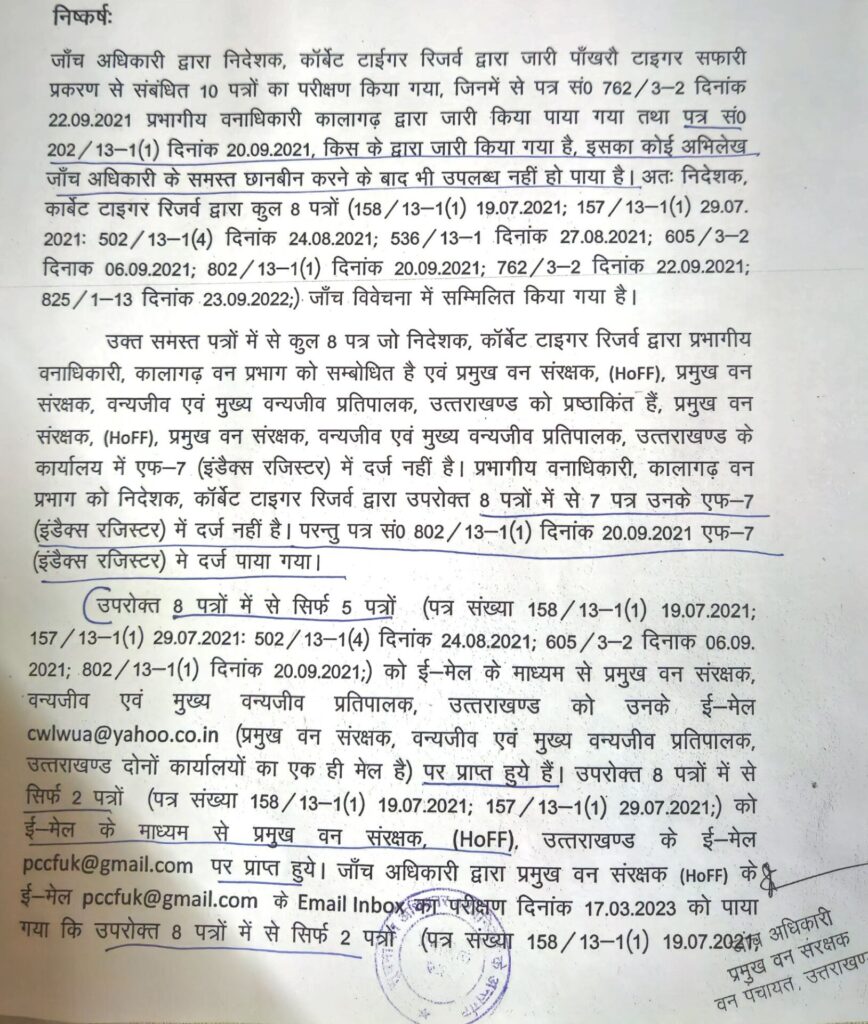 निष्कर्षः
जाँच अधिकारी द्वारा निदेशक, कॉर्बेट टाईगर रिजर्व द्वारा जारी पाँखरौ टाइगर सफारी
प्रकरण से संबंधित 10 पत्रों का परीक्षण किया गया, जिनमें से पत्र सं0 762/3–2 दिनांक
22.09.2021 प्रभागीय वनाधिकारी कालागढ़ द्वारा जारी किया पाया गया तथा पत्र सं0
202/13–1(1) दिनांक 20.09.2021, किस के द्वारा जारी किया गया है, इसका कोई अभिलेख
जाँच अधिकारी के समस्त छानबीन करने के बाद भी उपलब्ध नहीं हो पाया है। अतः निदेशक,
कार्बेट टाइगर रिजर्व द्वारा कुल 8 पत्रों (158/13–1(1) 19.07.2021; 157/13–1(1) 29.07.
2021ः 502/13–1(4) दिनांक 24.08.2021; 536/13–1 दिनांक 27.08.2021; 605/3–2
दिनाक 06.09.2021; 802/13–1(1) दिनांक 20.09.2021; 762/3–2 दिनांक 22.09.2021;
825/1–13 दिनांक 23.09.2022;) जाँच विवेचना में सम्मिलित किया गया है।
उक्त समस्त पत्रों में से कुल 8 पत्र जो निदेशक, कॉर्बेट टाइगर रिजर्व द्वारा प्रभागीय
वनाधिकारी, कालागढ़ वन प्रभाग को सम्बोधित है एवं प्रमुख वन संरक्षक, (HoFF), प्रमुख वन
संरक्षक, वन्यजीव एवं मुख्य वन्यजीव प्रतिपालक, उत्तराखण्ड को प्रष्ठाकिंत हैं, प्रमुख वन
संरक्षक, (HoFF), प्रमुख वन संरक्षक, वन्यजीव एवं मुख्य वन्यजीव प्रतिपालक, उत्तराखण्ड के
कार्यालय में एफ–7 (इंडैक्स रजिस्टर) में दर्ज नहीं है। प्रभागीय वनाधिकारी, कालागढ़ वन
प्रभाग को निदेशक, कॉर्बेट टाइगर रिजर्व द्वारा उपरोक्त 8 पत्रों में से 7 पत्र उनके एफ–7
(इंडैक्स रजिस्टर) में दर्ज नहीं है। परन्तु पत्र सं0 802/13–1(1) दिनांक 20.09.2021 एफ–7
(इंडैक्स रजिस्टर) मे दर्ज पाया गया।
उपरोक्त 8 पत्रों में से सिर्फ 5 पत्रों (पत्र संख्या 158/13–1(1) 19.07.2021;
157/13–1(1) 29.07.2021ः 502/13–1(4) दिनांक 24.08.2021; 605/3–2 दिनाक 06.09.
2021; 802/13–1(1) दिनांक 20.09.2021;) को ई–मेल के माध्यम से प्रमुख वन संरक्षक,
वन्यजीव एवं मुख्य वन्यजीव प्रतिपालक, उत्तराखण्ड को उनके ई–मेल
cwlwua@yahoo.co.in (प्रमुख वन संरक्षक, वन्यजीव एवं मुख्य वन्यजीव प्रतिपालक,
उत्तराखण्ड दोनों कार्यालयों का एक ही मेल है) पर प्राप्त हुये हैं। उपरोक्त 8 पत्रों में से
सिर्फ 2 पत्रों (पत्र संख्या 158/13–1(1) 19.07.2021; 157/13–1(1) 29.07.2021;) को
ई–मेल के माध्यम से प्रमुख वन संरक्षक, (HoFF), उत्तराखण्ड के ई–मेल
pccfuk@gmail.com पर प्राप्त हुये। जाँच अधिकारी द्वारा प्रमुख वन संरक्षक (HoFF) के
ई–मेल pccfuk@gmail.com के Email Inbox का परीक्षण दिनांक 17.03.2023 को पाया
गया कि उपरोक्त 8 पत्रों में से सिर्फ 2 पत्रों (पत्र संख्या 158/13–1(1) 19.07.2021;
जांच अधिकारी
प्रमुख वन संरक्षक
वन पंचायत, उत्तराखण्ड